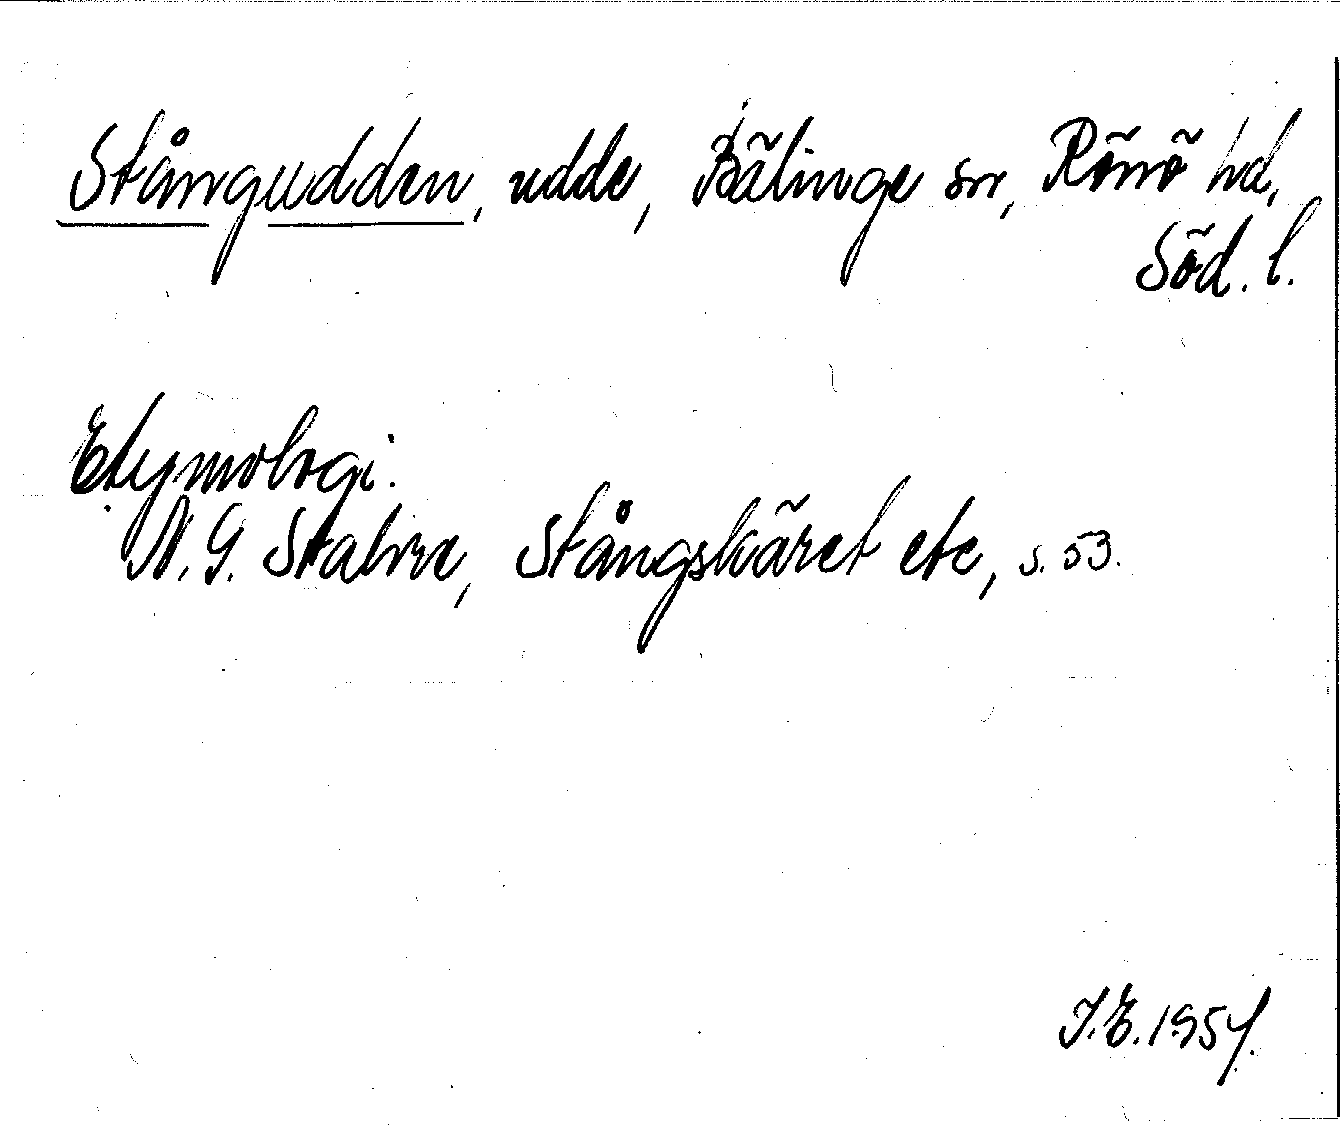 Stångudden, udde, Bälinge sn, Rönö hd,
Söd. l.
Etymologi.
N. G. Stahre, Stångskäret etc, s. 53.
J.E. 1957.